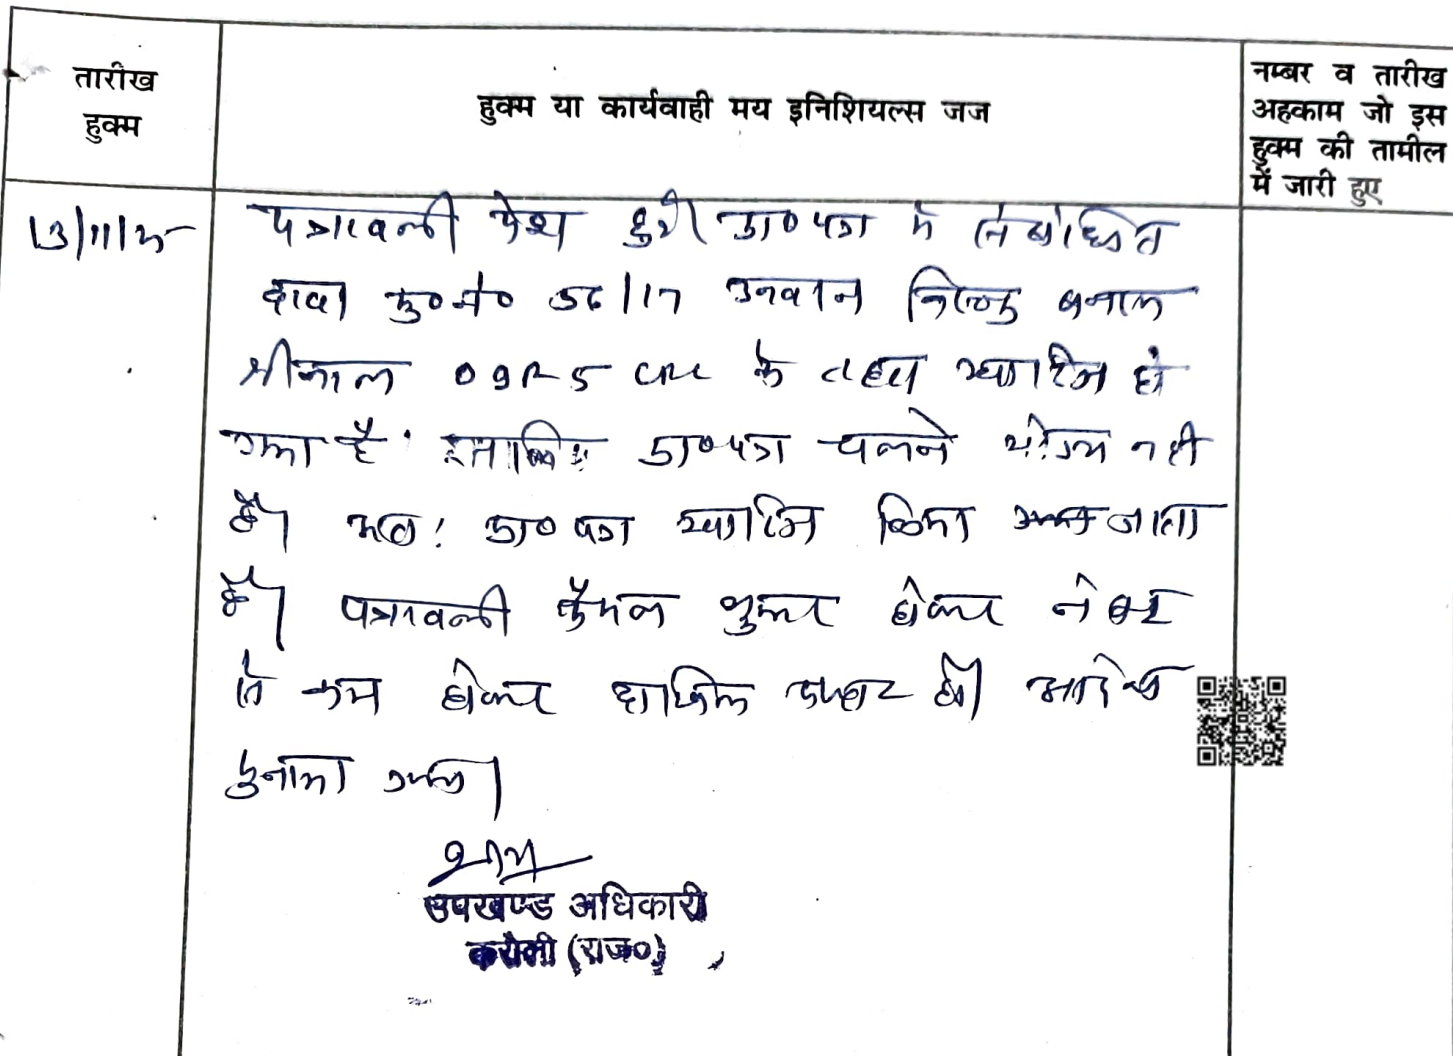 तारीख
हुक्म
हुक्म या कार्यवाही मय इनिशियल्स जज
नम्बर व तारीख
अहकाम जो इस
हुक्म की तामील
में जारी हुए
13/11/25
पत्रावली पेश हुयी प्रा० पत्र में संबंधित
दावा मु०नं० 56/17 उनवान बनाम
श्रीलाल O9R5 CPC के तहत खारिज हो
गया है। इसलिए प्रा०पत्र चलने योग्य नही
है। अतः प्रा० पत्र खारिज किया जाता
है। पत्रावली फैसल शुमार होकर नंबर
से कम होकर दाखिल दफ्तर हो। आदेश
सुनाया गया।
उपखण्ड अधिकारी
करौली (राज०)